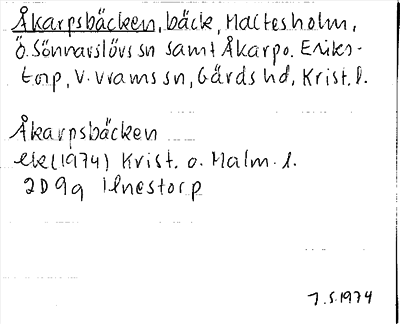 Åkarpsbäcken, bäck, Maltesholm,
Ö. Sönnarslövs sn samt Åkarp o. Eriks-
torp, V. Vrams sn, Gärds hd, Krist. l.
Åkarpsbäcken
ek (1974) Krist. o. Malm. l.
2D 9g
7.5.1974